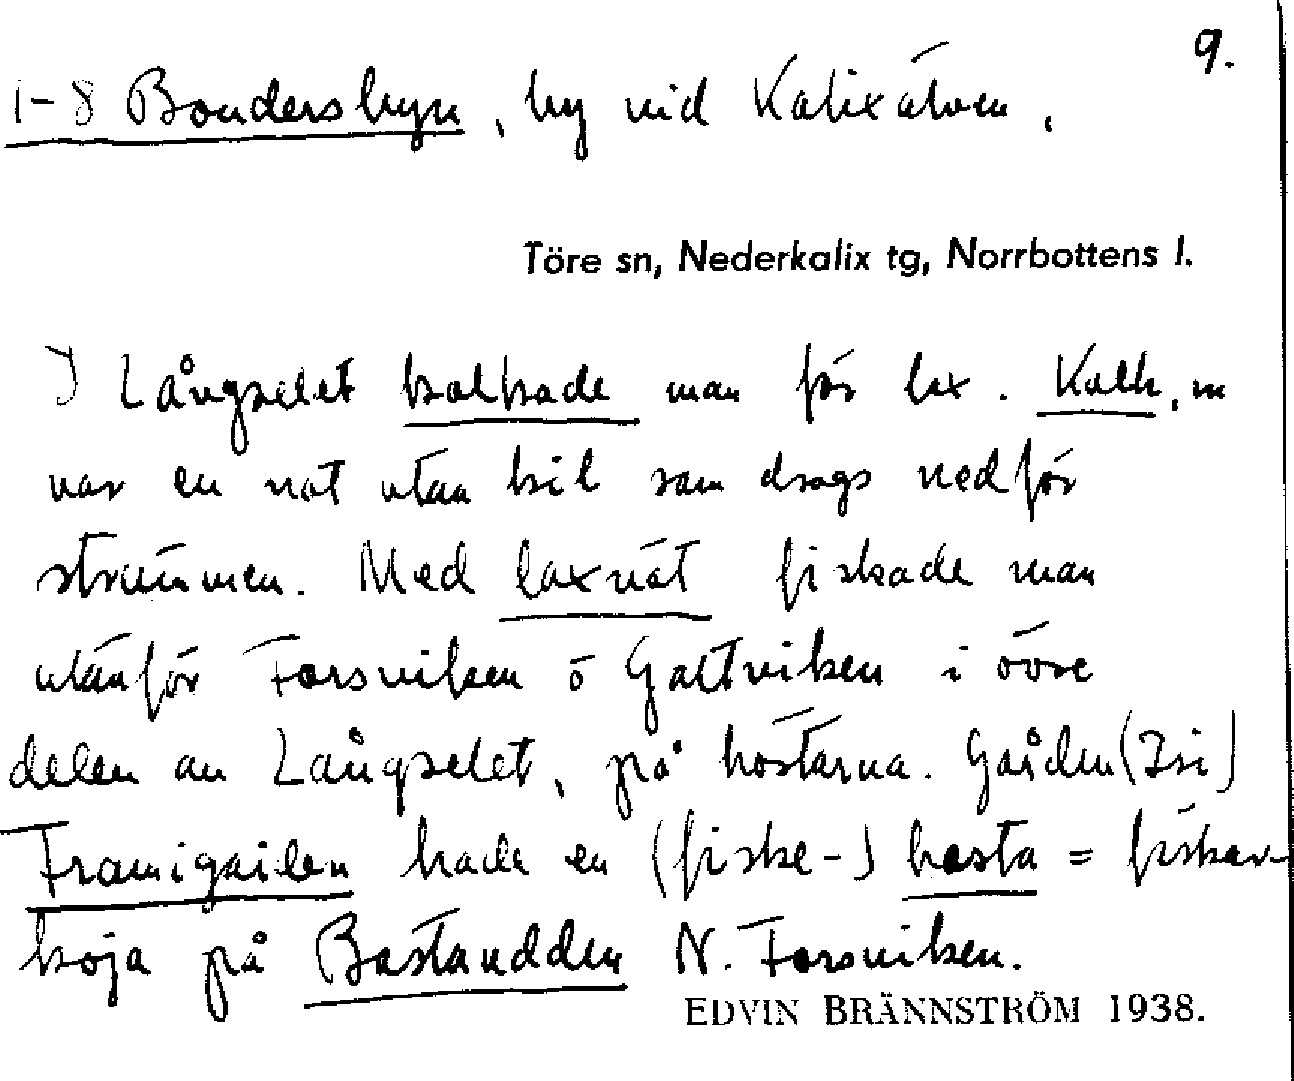 9.
1-8 Bondersbyn, by vid Kalixälven.
Töre sn, Nederkalix tg, Norrbottens l.
I Långselet kolkade man för lax. Kolk, m
var en not utan kil som drogs nedför
strömmen. Med laxnät fiskade man
utanför Forsviken ö Galtviken i övre
delen av Långselet, på höstarna. Gården (Isi)
Framigården hade en (fiske-) basta = fiskar-
koja på Bastaudden N. Forsviken.
EDVIN BRÄNNSTRÖM 1938.